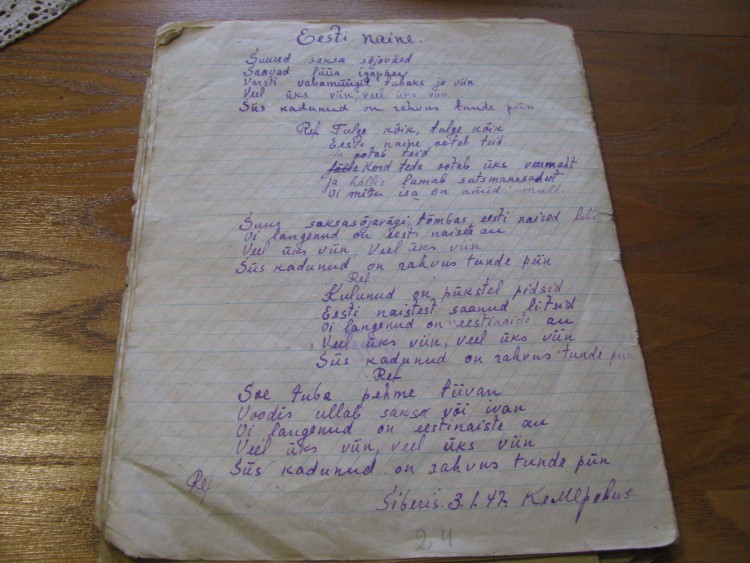 Eesti naine.
Suured saksa sõjaväed
Saavad lüüa igapäev
Varsti vabamüügil tubaks ja viin
Veel üks viin, veel üks viin
Siis kadunud on rahvus tunde piin
Ref Tulge kõik, tulge kõik
Eesti naine ootab teid
ja ootab teid
Kord teda ootab üks veermaht
ja hällis lamab
Oi minu isa on nüüd mull.
Suur saksasõjavägi, tõmbas eesti naised
Oi langenud on eesti naiste au
Veel üks viin, Veel üks viin
Siis kadunud on rahvus tunde piin
Ref
Kulunud on pükstel pidsid
Eesti naistest saanud litsid
Oi langenud on eestinaiste au
Veel üks viin, veel üks viin
Siis kadunud on rahvus tunde piin
Ref
Soe tuba pehme tiivan
Voodis ullab saksa või ivan
Oi langenud on eestinaiste au
Veel üks viin, veel üks viin
Siis kadunud on rahvus tunde piin
Ref
Siberis. 3.1.47. Кемеровus
24